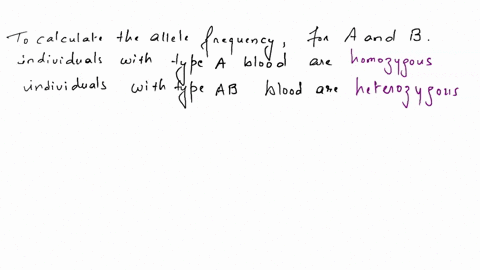 To calculate the allele frequency, for A and B.
individuals with type A blood are homozygous
individuals with type AB blood are heterozygous